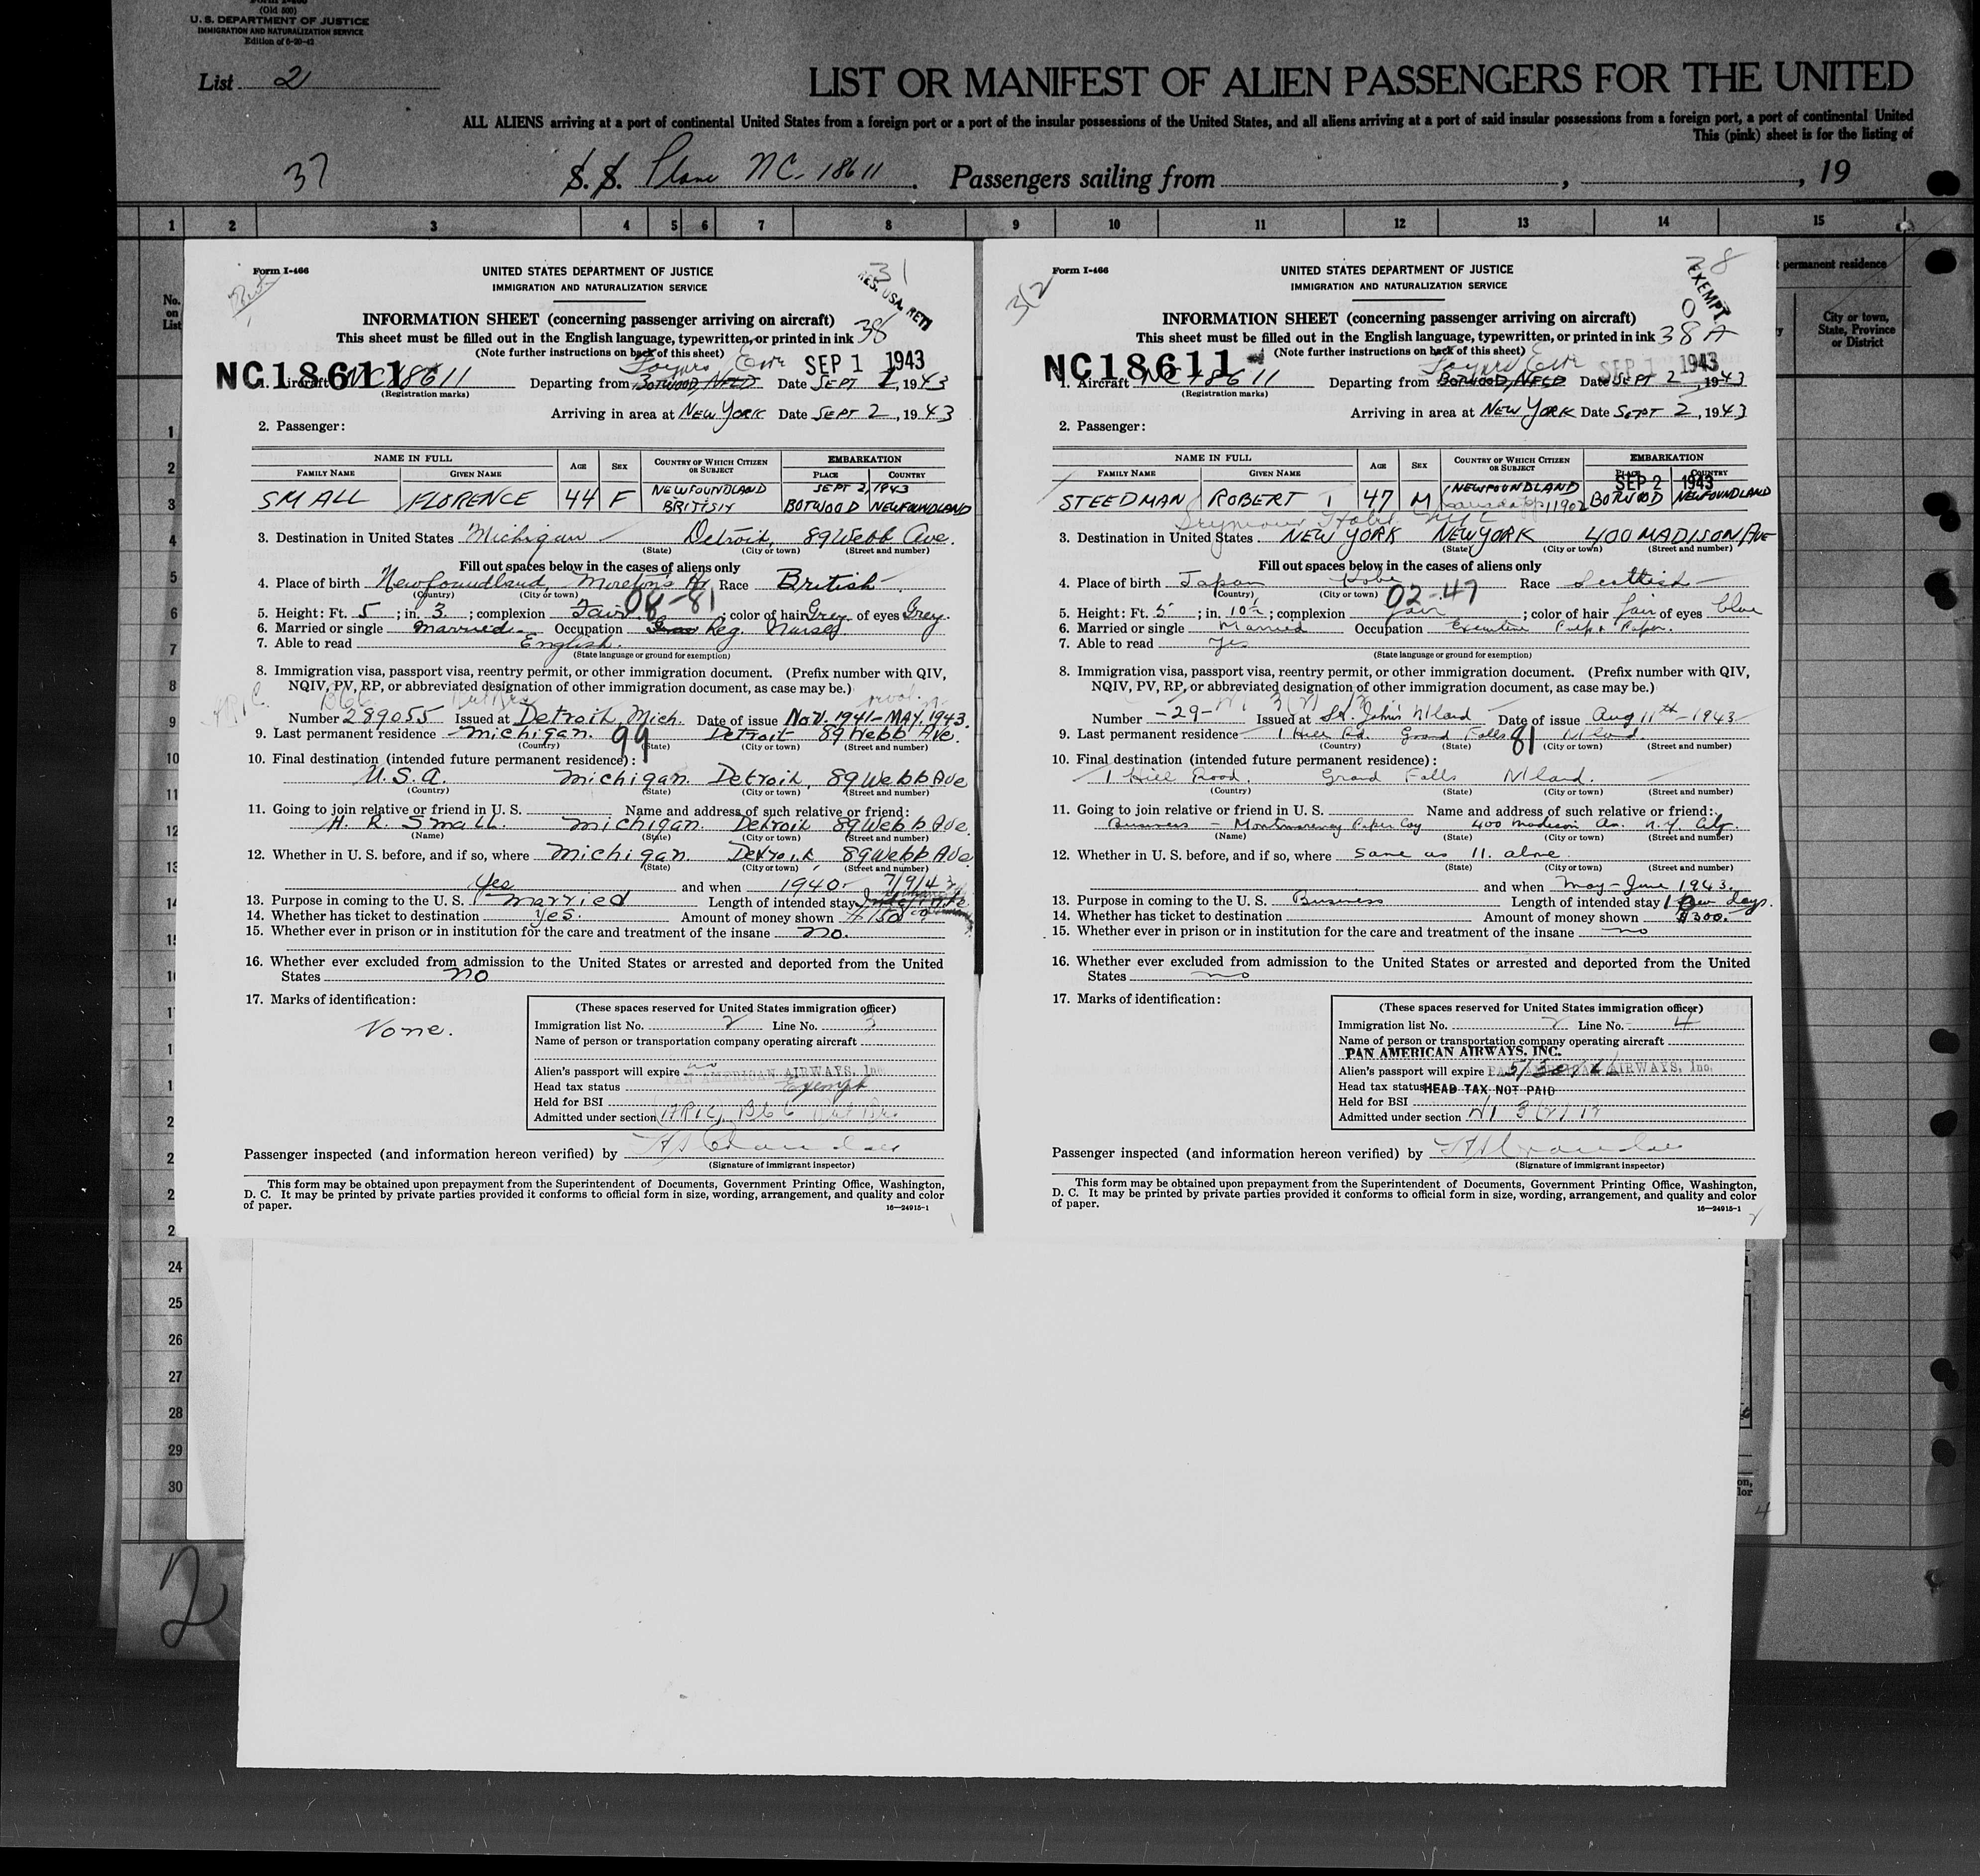 Form I-466
(Old 500)
U. S. DEPARTMENT OF JUSTICE
IMMIGRATION AND NATURALIZATION SERVICE
Edition of 6-20-42
List 2
LIST OR MANIFEST OF ALIEN PASSENGERS FOR THE UNITED
ALL ALIENS arriving at a port of continental United States from a foreign port or a port of the insular possessions of the United States, and all aliens arriving at a port of said insular possessions from a foreign port, a port of continental United
This (pink) sheet is for the listing of
37 S. S. Plane NC-18611. Passengers sailing from , , 19
1 2 3 4 5 6 7 8 9 10 11 12 13 14 15
No. on List
permanent residence
City or town, State, Province or District
Form I-466
31
RES. USA. RETI
UNITED STATES DEPARTMENT OF JUSTICE
IMMIGRATION AND NATURALIZATION SERVICE
INFORMATION SHEET (concerning passenger arriving on aircraft)
This sheet must be filled out in the English language, typewritten, or printed in ink 38
(Note further instructions on back of this sheet)
Foynes Eire SEP 1 1943
NC18611
1. Aircraft NC18611 Departing from BOTWOOD, NFLD Date SEPT 2, 1943
(Registration marks)
Arriving in area at NEW YORK Date SEPT 2, 1943
2. Passenger:
NAME IN FULL AGE SEX COUNTRY OF WHICH CITIZEN OR SUBJECT EMBARKATION
FAMILY NAME GIVEN NAME PLACE COUNTRY
SEPT 2, 1943
SMALL FLORENCE 44 F NEWFOUNDLAND BRITISH BOTWOOD NEWFOUNDLAND
3. Destination in United States Michigan Detroit, 89 Webb Ave.
(State) (City or town) (Street and number)
Fill out spaces below in the cases of aliens only
4. Place of birth Newfoundland, Moreton's Hr Race British
(Country) (City or town)
08-81
5. Height: Ft. 5; in. 3; complexion Fair; color of hair Grey of eyes Grey.
6. Married or single Married Occupation Reg. Nurse
7. Able to read English.
(State language or ground for exemption)
8. Immigration visa, passport visa, reentry permit, or other immigration document. (Prefix number with QIV,
NQIV, PV, RP, or abbreviated designation of other immigration document, as case may be.)
Number 289055 Issued at Detroit, Mich. Date of issue Nov. 1941-MAY, 1943.
9. Last permanent residence Michigan. 99 Detroit 89 Webb Ave.
(Country) (State) (City or town) (Street and number)
10. Final destination (intended future permanent residence):
U.S.A. Michigan. Detroit, 89 Webb Ave
(Country) (State) (City or town) (Street and number)
11. Going to join relative or friend in U. S. Name and address of such relative or friend:
H. R. Small. Michigan. Detroit 89 Webb Ave.
(Name) (State) (City or town) (Street and number)
12. Whether in U. S. before, and if so, where Michigan. Detroit, 89 Webb Ave
(State) (City or town) (Street and number)
Yes and when 1940- 7/9/43
13. Purpose in coming to the U. S. Married Length of intended stay
14. Whether has ticket to destination Yes. Amount of money shown $150
15. Whether ever in prison or in institution for the care and treatment of the insane No.
16. Whether ever excluded from admission to the United States or arrested and deported from the United
States No
17. Marks of identification:
None.
(These spaces reserved for United States immigration officer)
Immigration list No. 2 Line No. 3
Name of person or transportation company operating aircraft
Alien's passport will expire no
PAN AMERICAN AIRWAYS, Inc.
Head tax status Exempt
Held for BSI
Admitted under section
Passenger inspected (and information hereon verified) by
(Signature of immigrant inspector)
This form may be obtained upon prepayment from the Superintendent of Documents, Government Printing Office, Washington,
D. C. It may be printed by private parties provided it conforms to official form in size, wording, arrangement, and quality and color
of paper.
16—24915-1
Form I-466
EXEMPT
UNITED STATES DEPARTMENT OF JUSTICE
IMMIGRATION AND NATURALIZATION SERVICE
INFORMATION SHEET (concerning passenger arriving on aircraft)
This sheet must be filled out in the English language, typewritten, or printed in ink 38 A
(Note further instructions on back of this sheet)
Foynes Eire SEP 1 1943
NC18611
1. Aircraft NC18611 Departing from BOTWOOD, NFLD Date SEPT 2, 1943
(Registration marks)
Arriving in area at NEW YORK Date SEPT 2, 1943
2. Passenger:
NAME IN FULL AGE SEX COUNTRY OF WHICH CITIZEN OR SUBJECT EMBARKATION
FAMILY NAME GIVEN NAME PLACE COUNTRY
SEP 2 1943
STEEDMAN ROBERT T 47 M NEWFOUNDLAND BOTWOOD NEWFOUNDLAND
Seymour Hotel NYC
3. Destination in United States NEW YORK NEW YORK 400 MADISON AVE
(State) (City or town) (Street and number)
Fill out spaces below in the cases of aliens only
4. Place of birth Japan Kobe Race Scottish
(Country) (City or town)
02-47
5. Height: Ft. 5; in. 10½; complexion fair; color of hair fair of eyes blue
6. Married or single Married Occupation Executive Pulp & Paper.
7. Able to read Yes
(State language or ground for exemption)
8. Immigration visa, passport visa, reentry permit, or other immigration document. (Prefix number with QIV,
NQIV, PV, RP, or abbreviated designation of other immigration document, as case may be.)
Number -29- Issued at St. John's Nfland Date of issue Aug 11th-1943
9. Last permanent residence 1 Hill Rd. Grand Falls 81 Nfland.
(Country) (State) (City or town) (Street and number)
10. Final destination (intended future permanent residence):
1 Hill Road. Grand Falls Nfland.
(Country) (State) (City or town) (Street and number)
11. Going to join relative or friend in U. S. Name and address of such relative or friend:
Business - Montmorency Paper Coy 400 Madison Av. N.Y. City.
(Name) (State) (City or town) (Street and number)
12. Whether in U. S. before, and if so, where Same as 11. above.
(State) (City or town) (Street and number)
and when May-June 1943.
13. Purpose in coming to the U. S. Business Length of intended stay 10 days.
14. Whether has ticket to destination Amount of money shown $300.
15. Whether ever in prison or in institution for the care and treatment of the insane no
16. Whether ever excluded from admission to the United States or arrested and deported from the United
States no
17. Marks of identification:
(These spaces reserved for United States immigration officer)
Immigration list No. 2 Line No. 4
Name of person or transportation company operating aircraft
PAN AMERICAN AIRWAYS, INC.
Alien's passport will expire
PAN AMERICAN AIRWAYS, Inc.
Head tax status HEAD TAX NOT PAID
Held for BSI
Admitted under section
Passenger inspected (and information hereon verified) by
(Signature of immigrant inspector)
This form may be obtained upon prepayment from the Superintendent of Documents, Government Printing Office, Washington,
D. C. It may be printed by private parties provided it conforms to official form in size, wording, arrangement, and quality and color
of paper.
16—24915-1
24
25
26
27
28
29
30
2
4